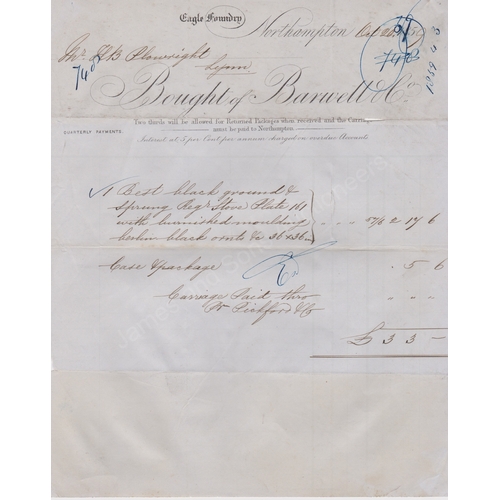 Eagle Foundry
Northampton Oct 24
Mr. Plowright
Lynn
Bought of Barwell & Co
Two thirds will be allowed for Returned Packages when received and the Carriage
must be paid to Northampton
QUARTERLY PAYMENTS.
Interest at 5 per Cent per annum charged on overdue Accounts
1 Best black ground &
sprung Regr Stove Plate 161
with burnished moulding
berlin black omts &c 36 x 36 57/6 2 17 6
Case & package 5 6
Carriage Paid thro
Pr Pickford & Co
£ 3 3 -